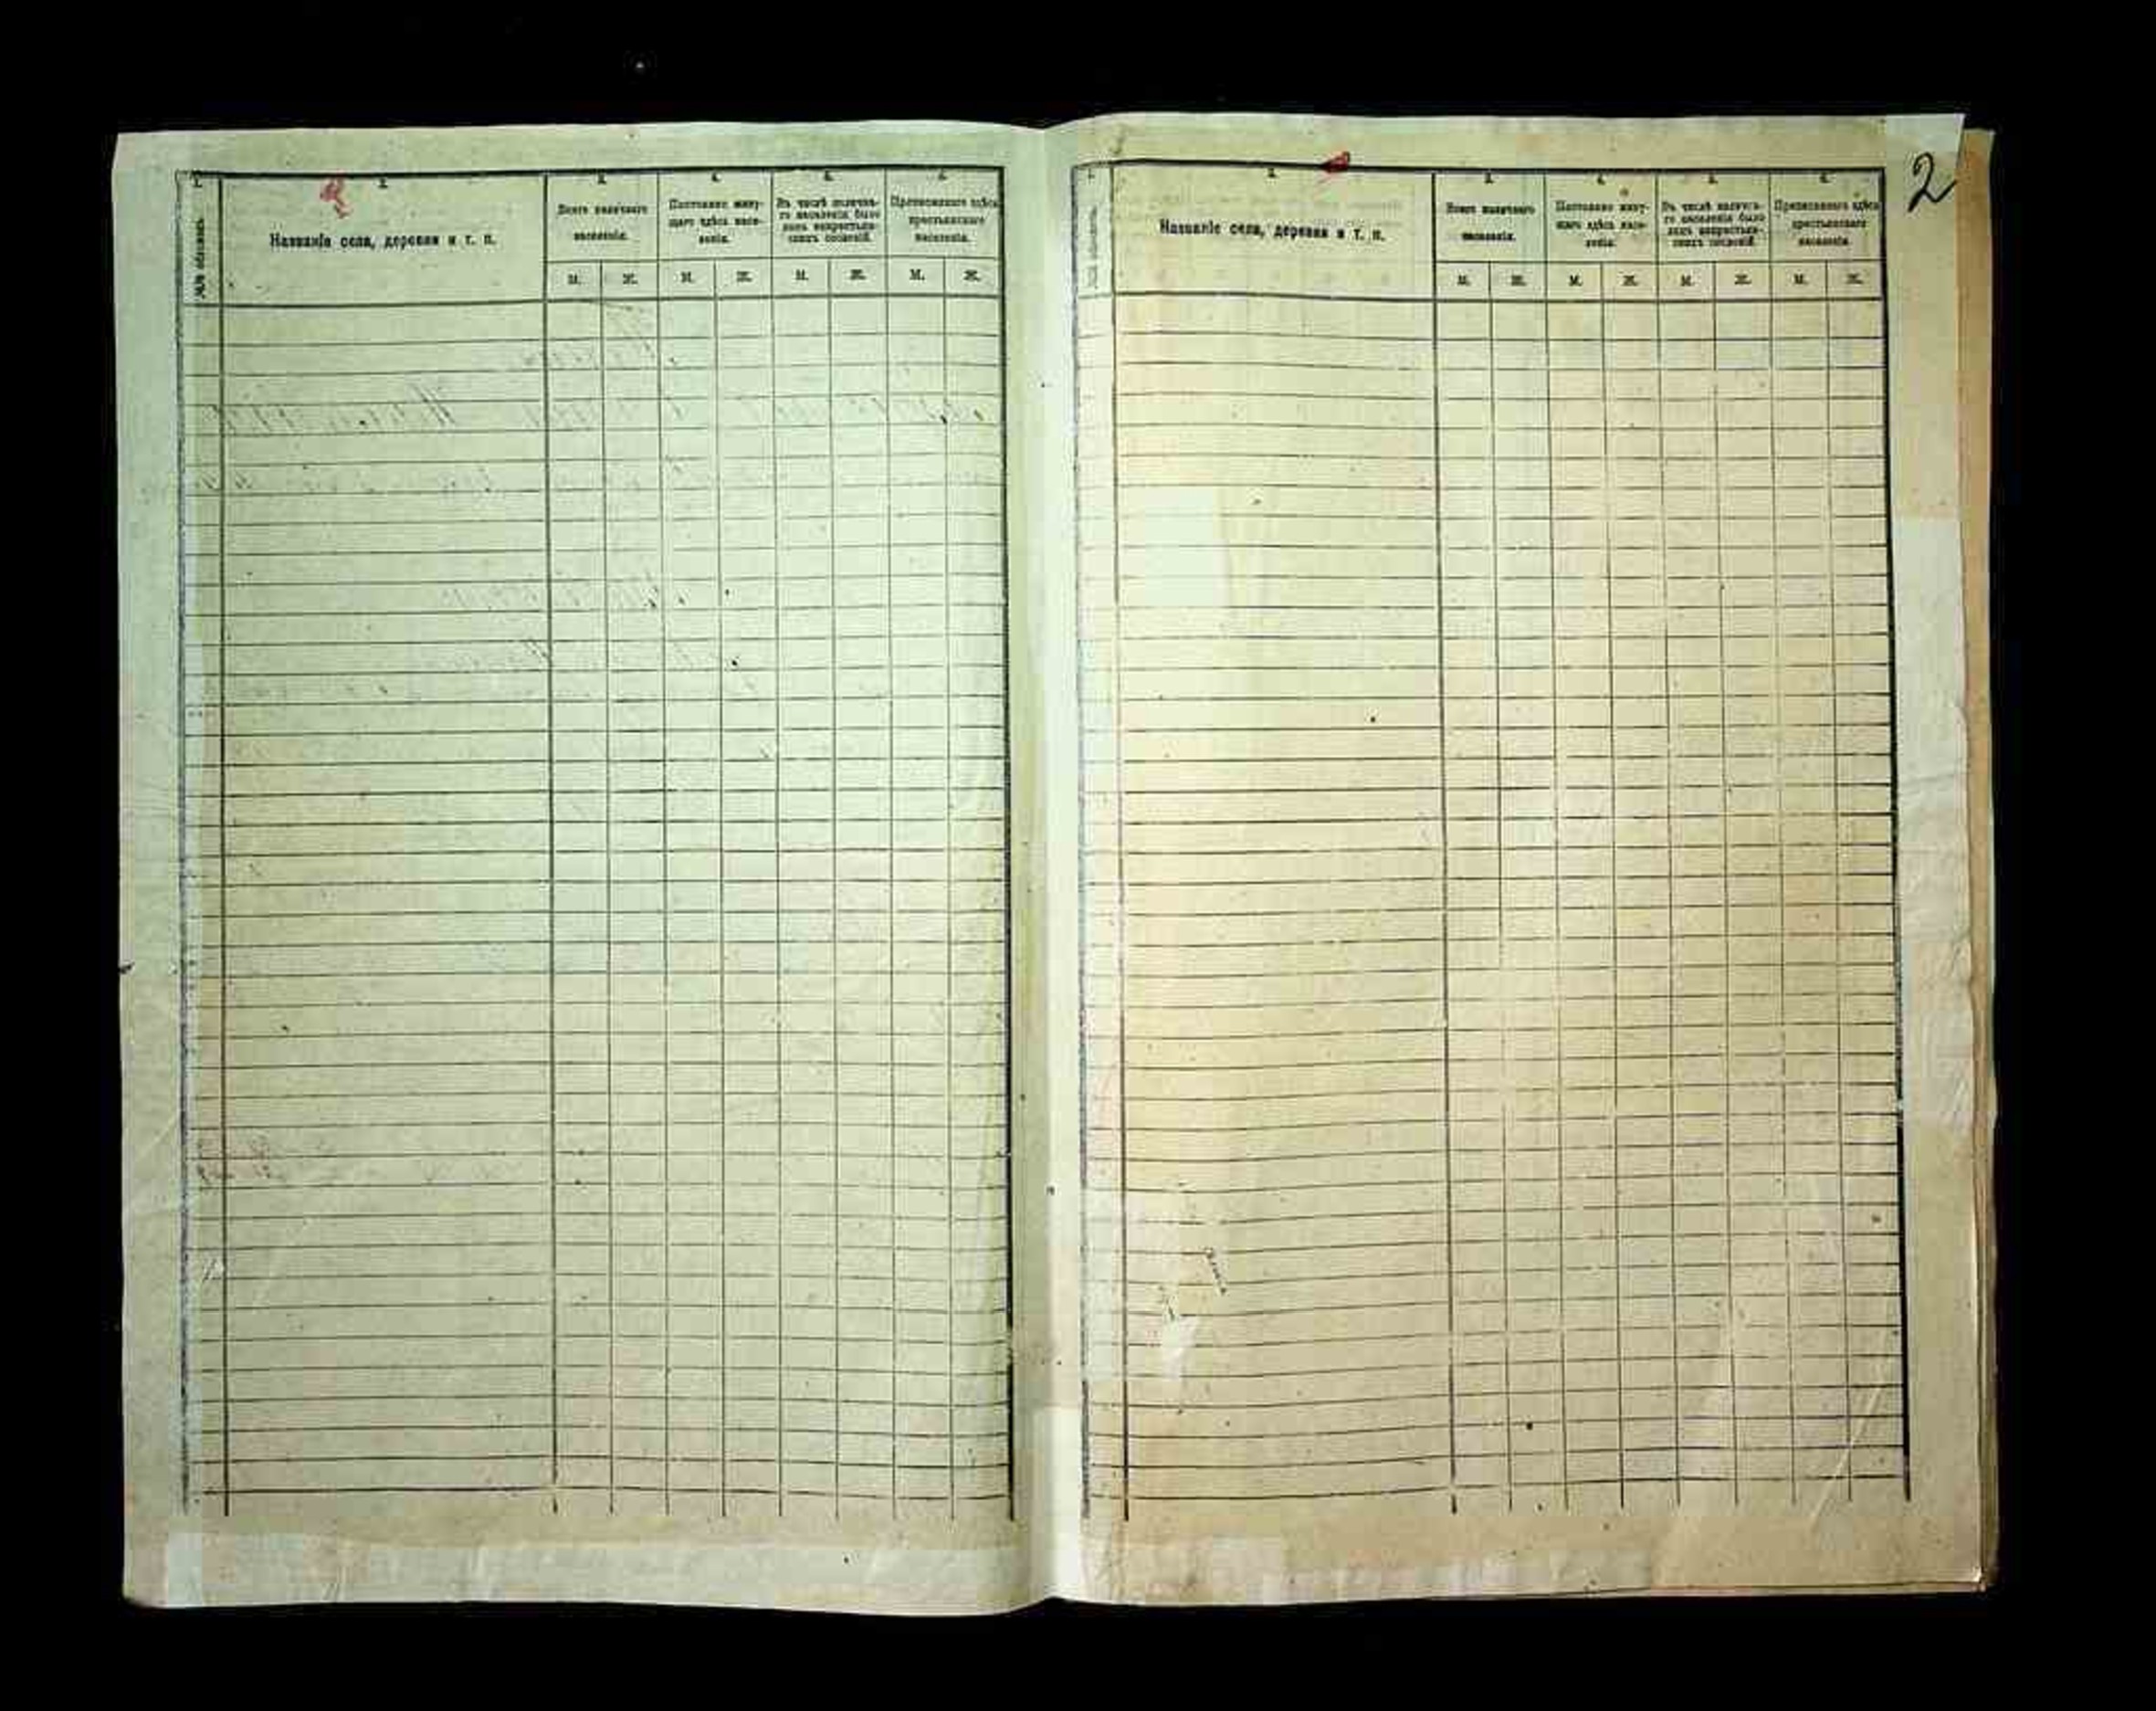 1. 2. 3. 4. 5. 6.
№№ обложекъ.
Названіе села, деревни и т. п.
Всего наличнаго населенія.
Постоянно живущаго здѣсь населенія.
Въ числѣ налична-
го населенія было
лицъ некрестьян-
скихъ сословій.
Приписаннаго здѣсь
крестьянскаго
населенія.
М. Ж. М. Ж. М. Ж. М. Ж.
2
1. 2. 3. 4. 5. 6.
№№ обложекъ.
Названіе села, деревни и т. п.
Всего наличнаго
населенія.
Постоянно живу-
щаго здѣсь насе-
ленія.
Въ числѣ налична-
го населенія было
лицъ некрестьян-
скихъ сословій.
Приписаннаго здѣсь
крестьянскаго
населенія.
М. Ж. М. Ж. М. Ж. М. Ж.